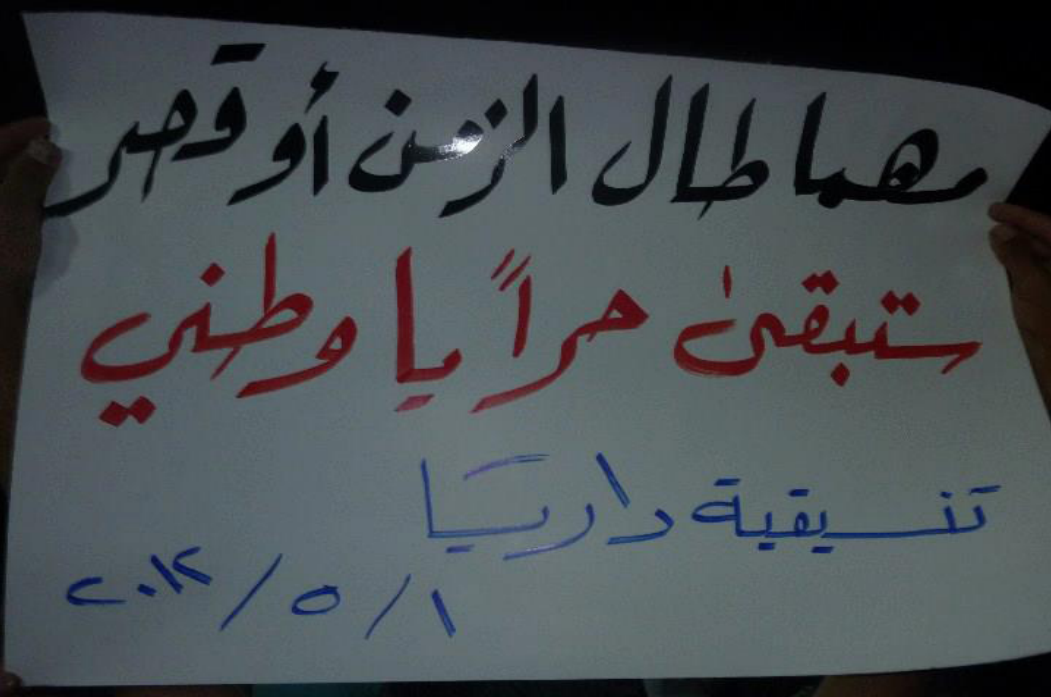 مهما طال الزمن أو قصر
ستبقىٰ حراً يا وطني
تنسيقية داريّا
٢٠١٢/٥/١